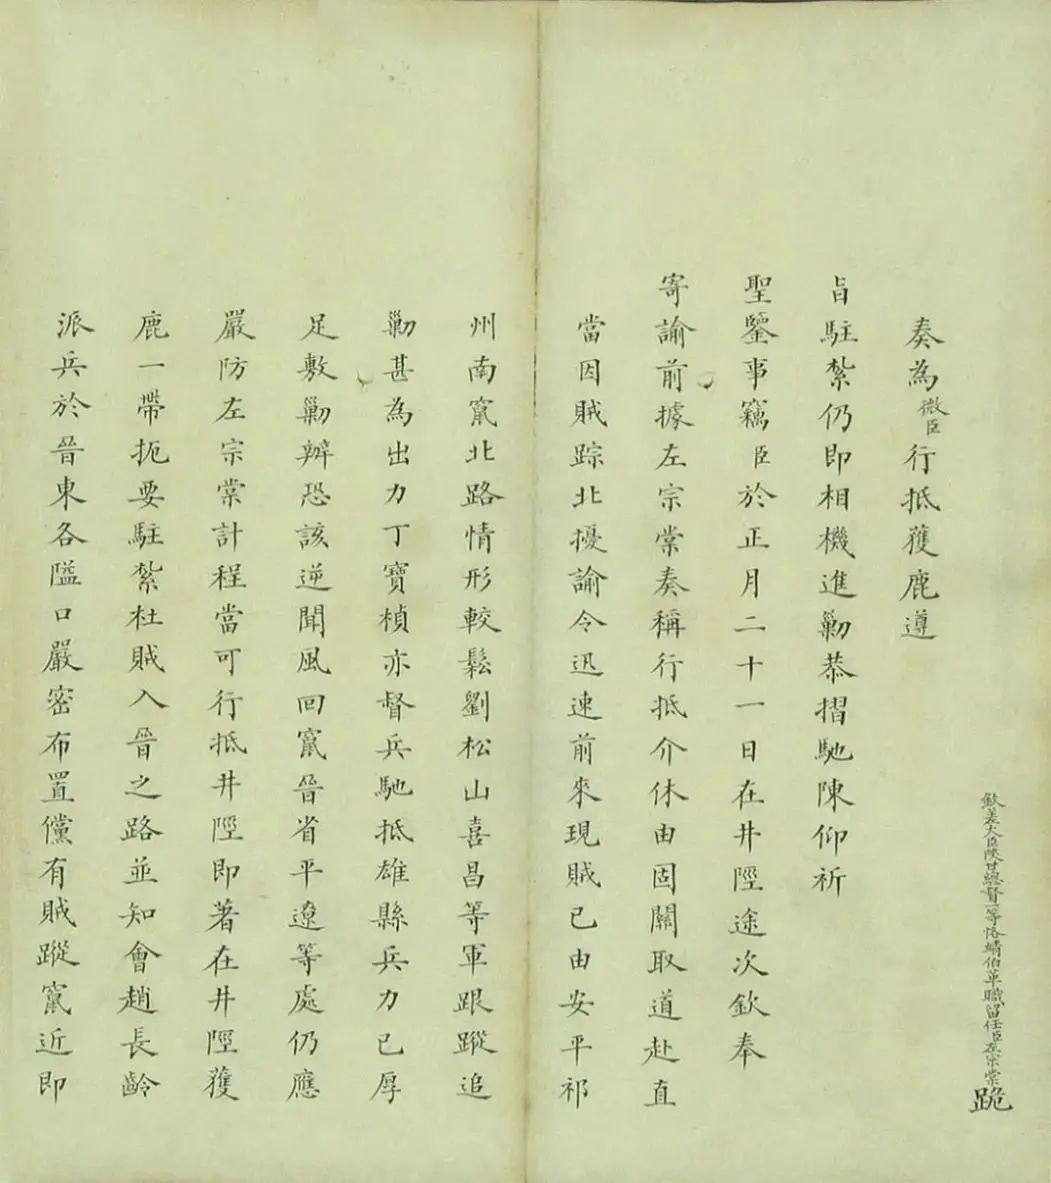 欽差大臣陝甘總督一等恪靖伯革職留任臣左宗棠跪
奏為微臣行抵獲鹿遵
旨駐紮仍即相機進勦恭摺馳陳仰祈
聖鑒事竊臣於正月二十一日在井陘途次欽奉
寄諭前據左宗棠奏稱行抵介休由固關取道赴直
當因賊踪北擾諭令迅速前來現賊已由安平祁
州南竄北路情形較鬆劉松山喜昌等軍跟蹤追
勦甚為出力丁寶楨亦督兵馳抵雄縣兵力已厚
足敷勦辨恐該逆聞風回竄晉省平遼等處仍應
嚴防左宗棠計程當可行抵井陘即著在井陘獲
鹿一帶扼要駐紮杜賊入晉之路並知會趙長齡
派兵於晉東各隘口嚴密布置儻有賊蹤竄近即